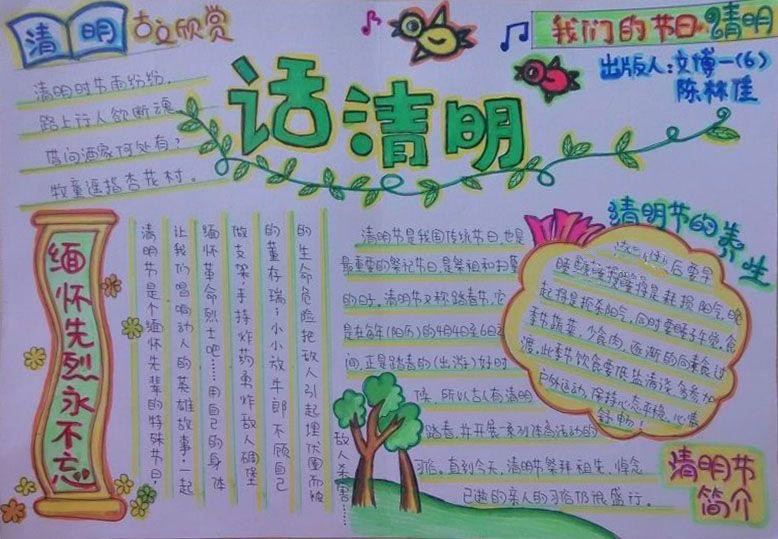 清明
古文欣赏
清明时节雨纷纷，
路上行人欲断魂
借问酒家何处有？
牧童遥指杏花村．
话清明
我们的节日 清明
出版人：文博一(6)
陈林佳
缅怀先烈永不忘
清明节是个缅怀先辈的特殊节日，
让我们唱响动人的英雄故事，一起
缅怀革命烈士吧……用自己的身体
做支架，手持炸药包炸敌人碉堡
的董存瑞；小小放牛郎不顾自己
的生命危险把敌人引起埋伏圈而被
敌人杀害……
清明节是我国传统节日，也是
最重要的祭祀节日，是祭祖和扫墓
的日子。清明节又称踏青节，它
是在每年(阳历)的4月4日至6日之
间，正是踏青的(出游)好时
候，所以古人有清明
踏春，并开展一系列体育活动的
习俗。直到今天，清明节祭拜祖先，悼念
已逝的亲人的习俗仍很盛行。
清明节的养生
后要早
睡
起择是扼杀阳气，同时要睡子午觉，食
季节蔬菜，少食肉，逐渐的向素食过
渡，此季饮食要低盐清淡，多参加
户外运动，保持心态平稳，心情
舒畅！
清明节
简介